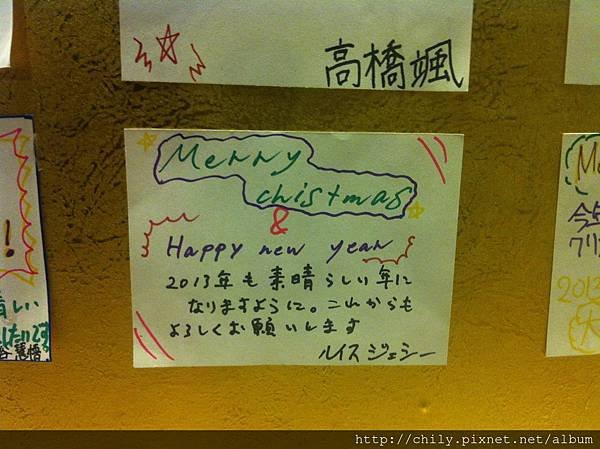 高橋颯
Merry
chistmas
&
Happy new year
2013年も素晴らしい年に
なりますように。これからも
よろしくお願いします
ルイスジェシー
!
晴しい
したいです
谷慧悟
今年
クリ
2013
大
http://chily.pixnet.net/album